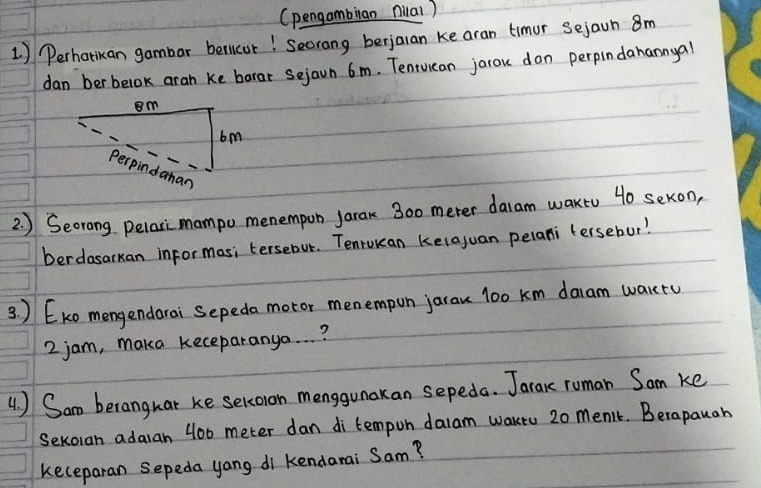 (pengambilan nilai)
1.) Perhatikan gambar berikut! Seorang berjalan ke arah timur sejauh 8m
dan berbelok arah ke barat sejauh 6m. Tentukan jarak dan perpindahannya!
8m
6m
Perpindahan
2.) Seorang pelari mampu menempuh jarak 300 meter dalam waktu 40 sekon,
berdasarkan informasi tersebut. Tentukan kelajuan pelari tersebut!
3.) Eko mengendarai sepeda motor menempuh jarak 100 km dalam waktu
2 jam, maka keceparanya....?
4.) Sam berangkat ke sekolah menggunakan sepeda. Jarak rumah Sam ke
sekolah adalah 400 meter dan di tempuh dalam waktu 20 menit. Berapakah
keceparan sepeda yang di kendarai Sam?